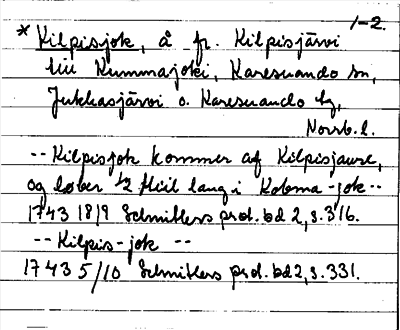 1-2.
* Kilpisjok, å fr. Kilpisjärvi
till Kummajoki, Karesuando sn,
Jukkasjärvi o. Karesuando tg,
Norrb.l.
-- Kilpisjok kommer af Kilpisjaure,
og løber 1/2 Miil lang i Kobma-jok --
1743 18/9 Schnitlers prot. bd 2, s. 316.
-- Kilpis-jok --
1743 5/10 Schnitlers prot. bd 2, s. 331.